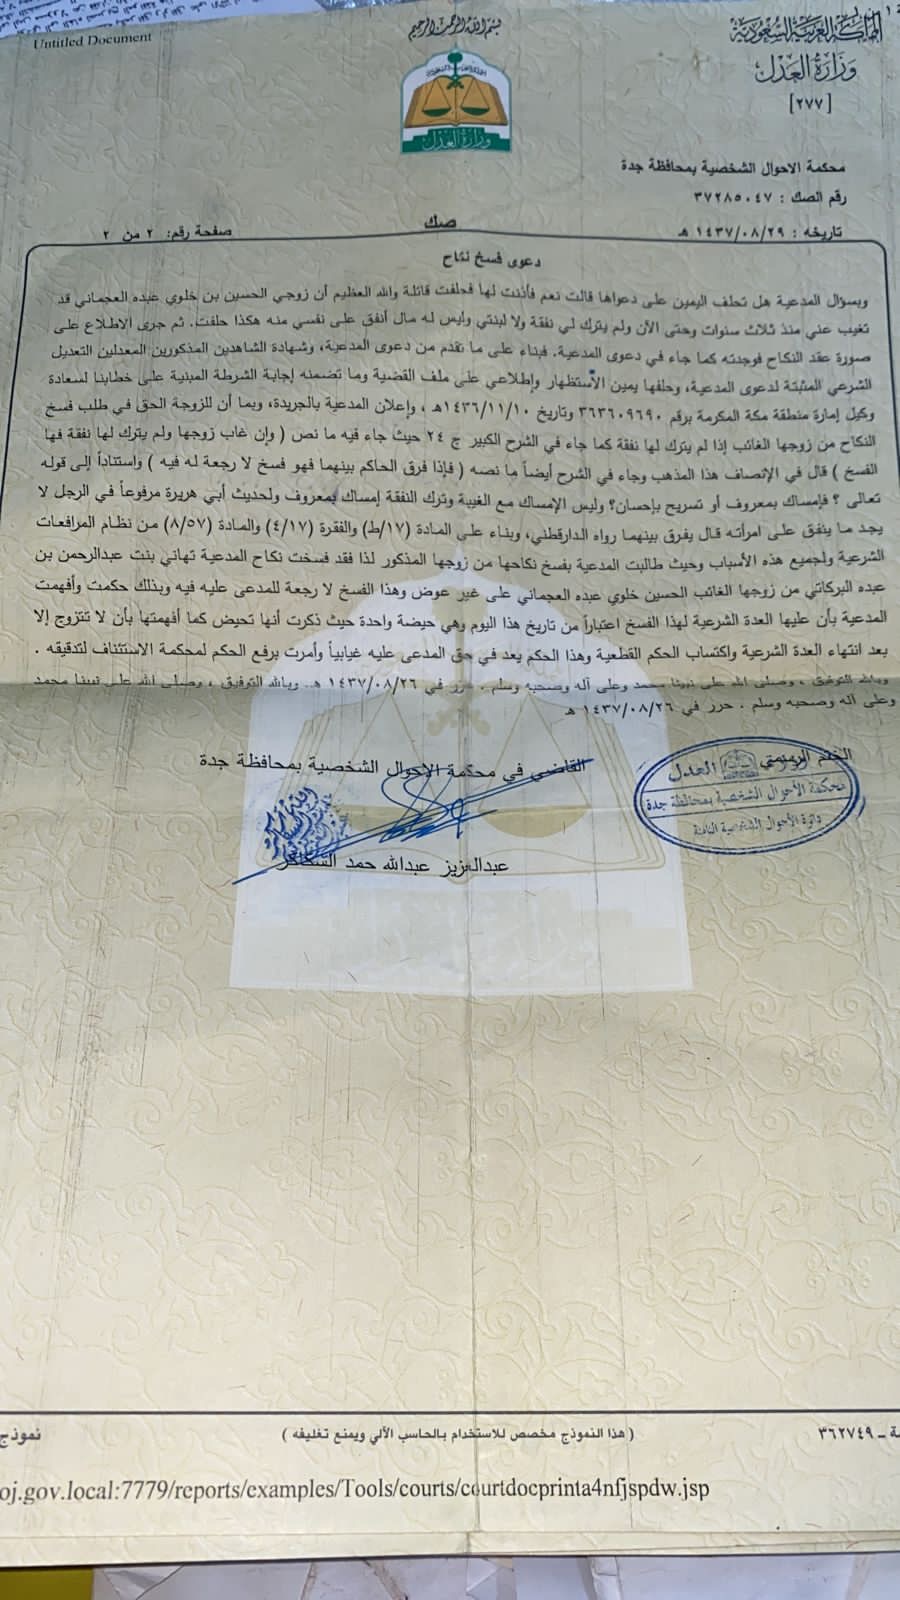 Untitled Document
بسم الله الرحمن الرحيم
المملكة العربية السعودية
وزارة العدل
[٢٧٧]
وزارة العدل
محكمة الاحوال الشخصية بمحافظة جدة
رقم الصك : ٣٧٢٨٥٠٤٧
تاريخه : ١٤٣٧/٠٨/٢٩ هـ
صك
صفحة رقم: ٢ من ٢
دعوى فسخ نكاح
وبسؤال المدعية هل تحلف اليمين على دعواها قالت نعم فأذنت لها فحلفت قائلة والله العظيم أن زوجي الحسين بن خلوي عبده العجماني قد
تغيب عني منذ ثلاث سنوات وحتى الآن ولم يترك لي نفقة ولا لبنتي وليس له مال أنفق على نفسي منه هكذا حلفت. ثم جرى الاطلاع على
صورة عقد النكاح فوجدته كما جاء في دعوى المدعية. فبناء على ما تقدم من دعوى المدعية، وشهادة الشاهدين المذكورين المعدلين التعديل
الشرعي المثبتة لدعوى المدعية، وحلفها يمين الأستظهار وإطلاعي على ملف القضية وما تضمنه إجابة الشرطة المبنية على خطابنا لسعادة
وكيل إمارة منطقة مكة المكرمة برقم ٣٦٣٦٠٩٦٩٠ وتاريخ ١٤٣٦/١١/١٠هـ ، وإعلان المدعية بالجريدة، وبما أن للزوجة الحق في طلب فسخ
النكاح من زوجها الغائب إذا لم يترك لها نفقة كما جاء في الشرح الكبير ج ٢٤ حيث جاء فيه ما نص ( وإن غاب زوجها ولم يترك لها نفقة فها
الفسخ ) قال في الإنصاف هذا المذهب وجاء في الشرح أيضاً ما نصه ( فإذا فرق الحاكم بينهما فهو فسخ لا رجعة له فيه ) واستناداً إلى قوله
تعالى ؟ فإمساك بمعروف أو تسريح بإحسان؟ وليس الإمساك مع الغيبة وترك النفقة إمساك بمعروف ولحديث أبي هريرة مرفوعاً في الرجل لا
يجد ما ينفق على امرأته قال يفرق بينهما رواه الدارقطني، وبناء على المادة (١٧/ط) والفقرة (٤/١٧) والمادة (٨/٥٧) من نظام المرافعات
الشرعية ولجميع هذه الأسباب وحيث طالبت المدعية بفسخ نكاحها من زوجها المذكور لذا فقد فسخت نكاح المدعية تهاني بنت عبدالرحمن بن
عبده البركاتي من زوجها الغائب الحسين خلوي عبده العجماني على غير عوض وهذا الفسخ لا رجعة للمدعى عليه فيه وبذلك حكمت وأفهمت
المدعية بأن عليها العدة الشرعية لهذا الفسخ اعتباراً من تاريخ هذا اليوم وهي حيضة واحدة حيث ذكرت أنها تحيض كما أفهمتها بأن لا تتزوج إلا
بعد انتهاء العدة الشرعية واكتساب الحكم القطعية وهذا الحكم يعد في حق المدعى عليه غيابياً وأمرت برفع الحكم لمحكمة الاستئناف لتدقيقه .
وبالله التوفيق ، وصلى الله على نبينا محمد وعلى آله وصحبه وسلم . حرر في ١٤٣٧/٠٨/٢٦ هـ. وبالله التوفيق ، وصلى الله على نبينا محمد
وعلى آله وصحبه وسلم . حرر في ١٤٣٧/٠٨/٢٦ هـ
الختم الرسمي
العدل
محكمة الأحوال الشخصية بمحافظة جدة
دائرة الأحوال الشخصية الثامنة
القاضي في محكمة الاحوال الشخصية بمحافظة جدة
عبدالعزيز عبدالله حمد
ـة ـ ٣٦٢٧٤٩
( هذا النموذج مخصص للاستخدام بالحاسب الآلي ويمنع تغليفه )
نموذج
oj.gov.local:7779/reports/examples/Tools/courts/courtdocprinta4nfjspdw.jsp